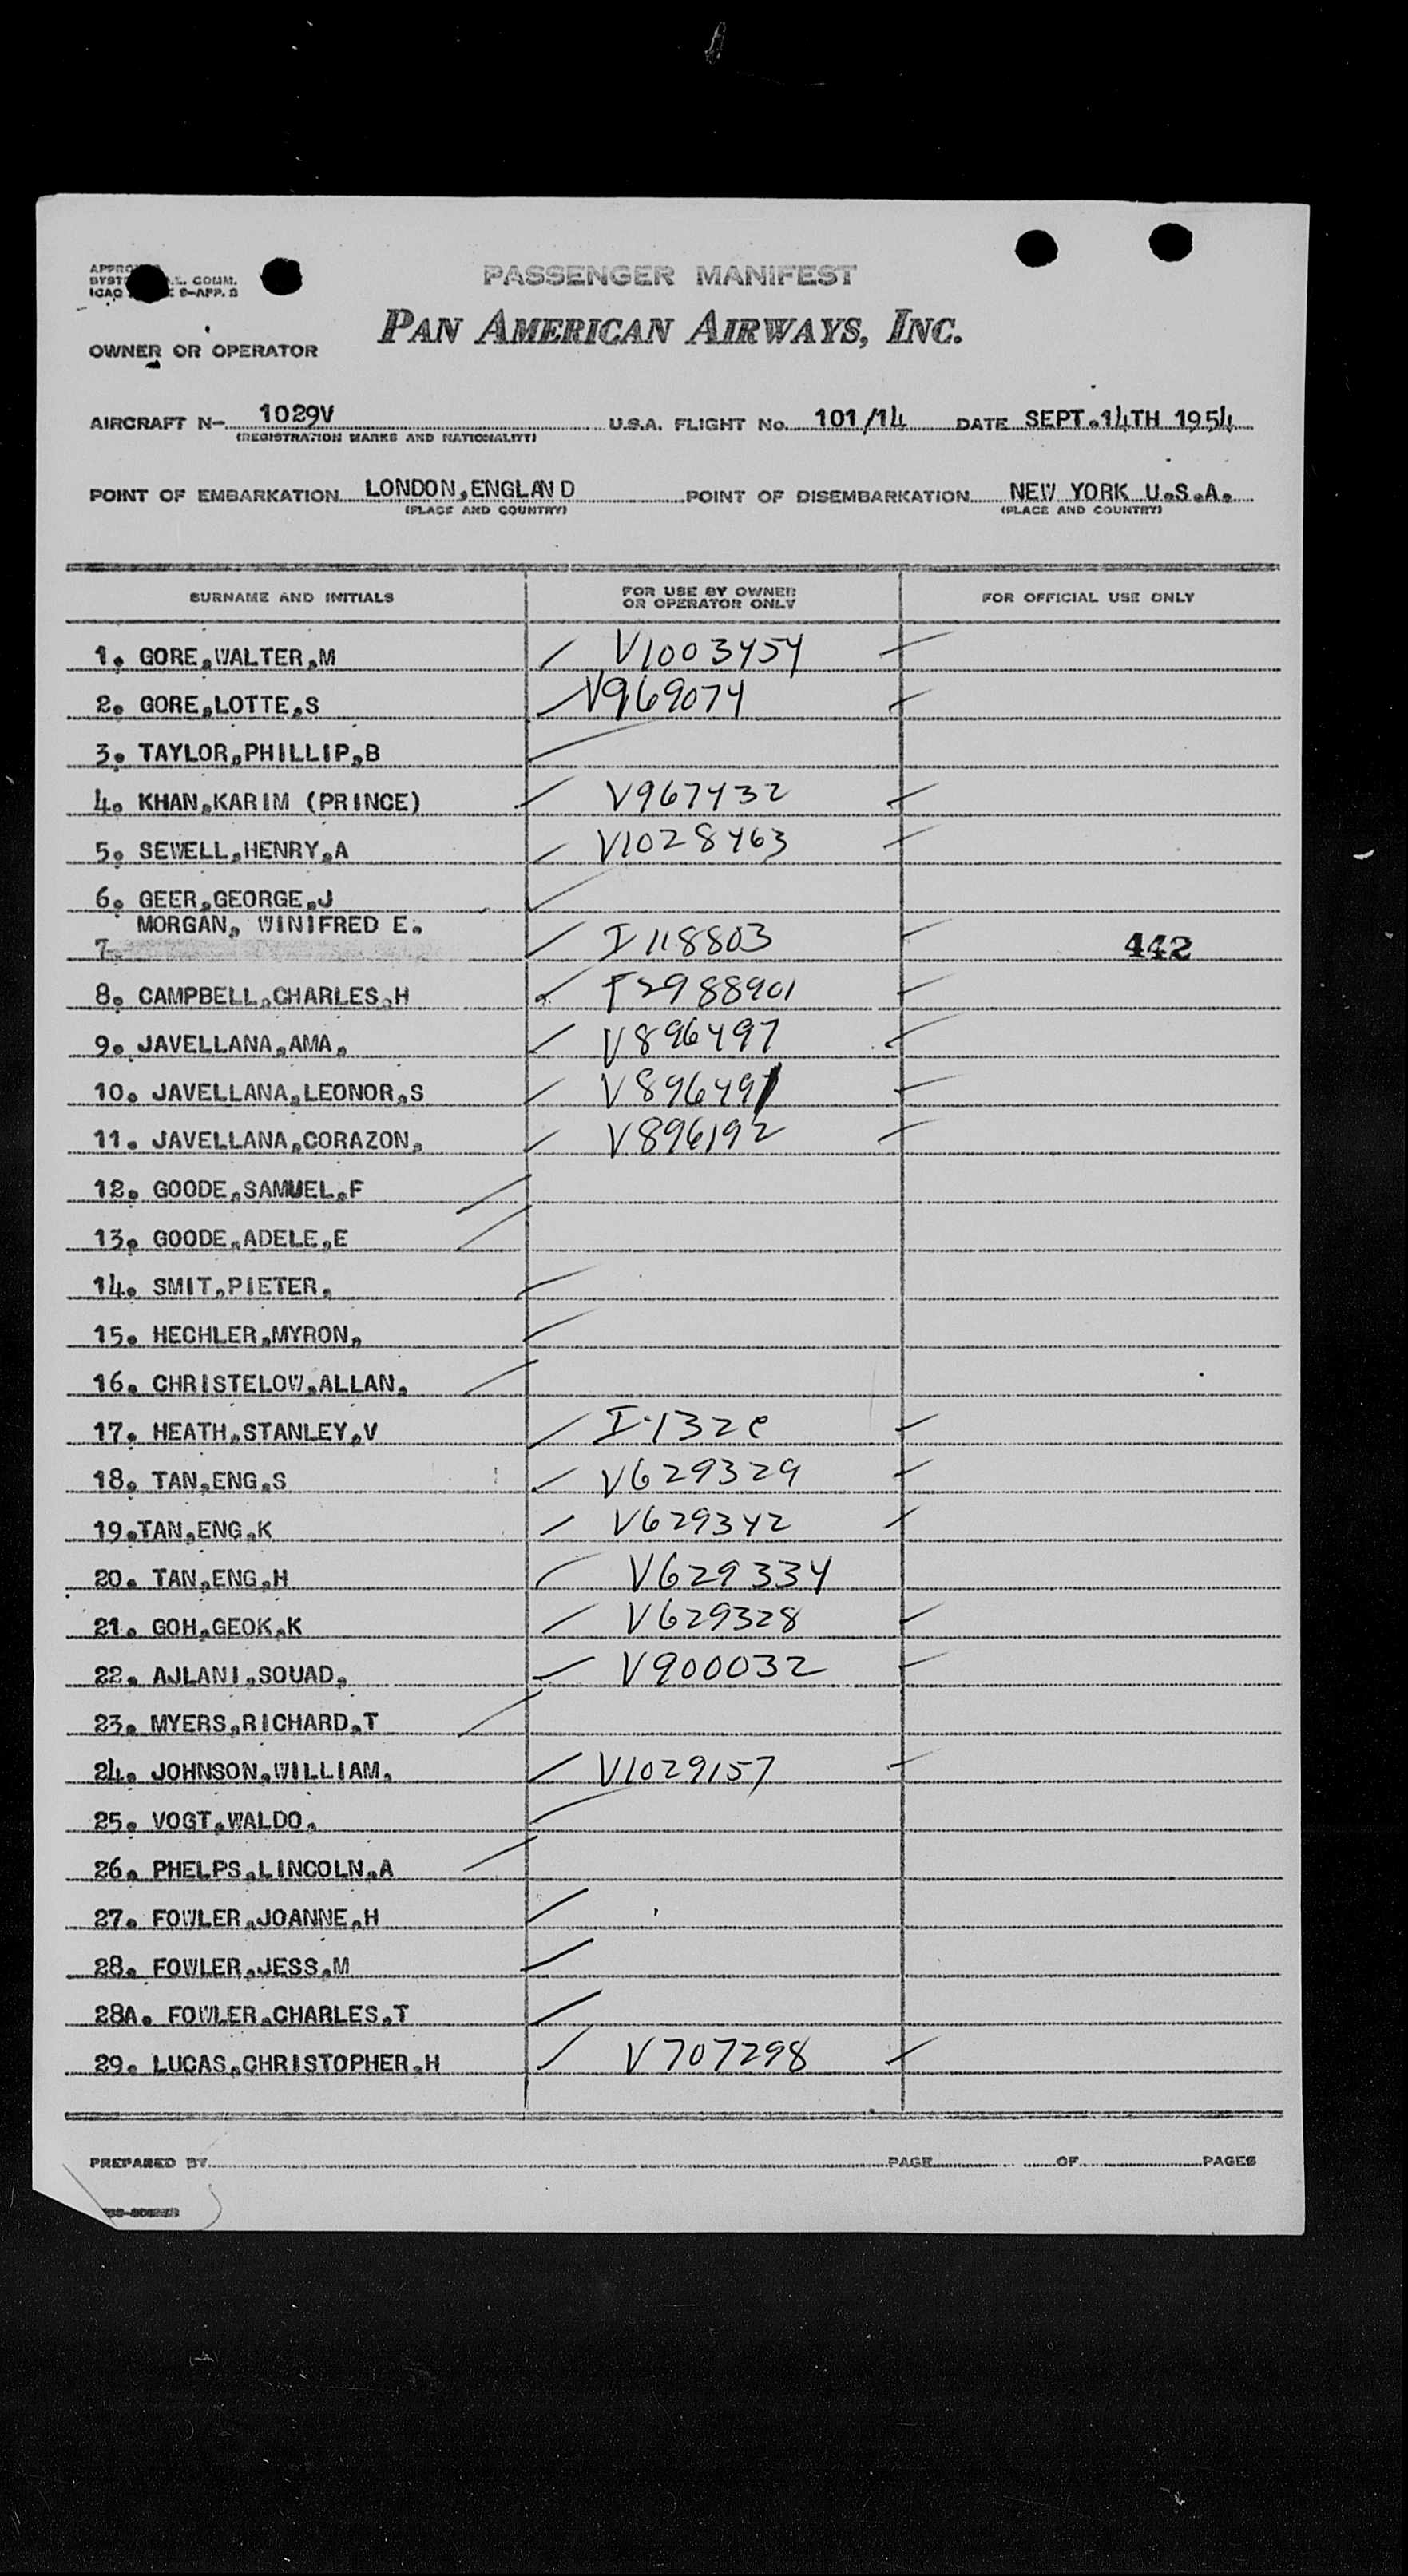 PASSENGER MANIFEST
PAN AMERICAN AIRWAYS, INC.
OWNER OR OPERATOR
AIRCRAFT N- 1029V U.S.A. FLIGHT No. 101/14 DATE SEPT.14TH 1954
(REGISTRATION MARKS AND NATIONALITY)
POINT OF EMBARKATION LONDON,ENGLAND POINT OF DISEMBARKATION NEW YORK U.S.A.
(PLACE AND COUNTRY) (PLACE AND COUNTRY)
SURNAME AND INITIALS FOR USE BY OWNER OR OPERATOR ONLY FOR OFFICIAL USE ONLY
1. GORE,WALTER,M V1003454
2. GORE,LOTTE,S V969074
3. TAYLOR,PHILLIP,B
4. KHAN,KARIM (PRINCE) V967432
5. SEWELL,HENRY,A V1028463
6. GEER,GEORGE,J
7. MORGAN, WINIFRED E. I 118803 442
8. CAMPBELL,CHARLES,H I2988901
9. JAVELLANA,AMA, V896497
10. JAVELLANA,LEONOR,S V896491
11. JAVELLANA,CORAZON, V896192
12. GOODE,SAMUEL,F
13. GOODE,ADELE,E
14. SMIT,PIETER,
15. HECHLER,MYRON,
16. CHRISTELOW,ALLAN,
17. HEATH,STANLEY,V
18. TAN,ENG,S V629329
19.TAN,ENG,K V629342
20. TAN,ENG,H V629334
21. GOH,GEOK,K V629328
22. AJLANI,SOUAD, V900032
23. MYERS,RICHARD,T
24. JOHNSON,WILLIAM, V1029157
25. VOGT,WALDO,
26. PHELPS,LINCOLN,A
27. FOWLER,JOANNE,H
28. FOWLER,JESS,M
28A. FOWLER,CHARLES,T
29. LUCAS,CHRISTOPHER,H V707298
PREPARED BY PAGE OF PAGES